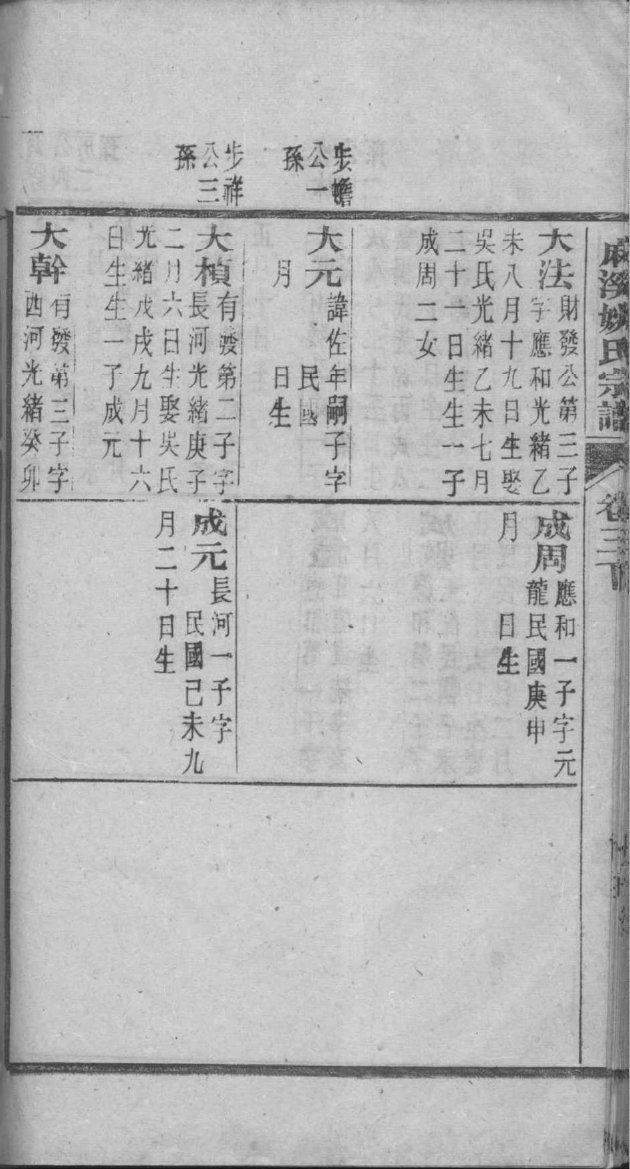 麻溪姚氏宗譜
卷三
步蟾
公一
孫
步祥
公三
孫
大法
財發公第三子
字應和光緒乙
未八月十九日生娶
吳氏光緒乙未七月
二十一日生生一子
成周二女
大元
諱佐年嗣子字
民國
月
日生
大楨
有發第二子字
長河光緒庚子
二月六日生娶吳氏
光緒戊戌九月十六
日生生一子成元
大幹
有發第三子字
西河光緒癸卯
成周
應和一子字元
龍民國庚申
月
日生
成元
長河一子字
民國己未九
月二十日生